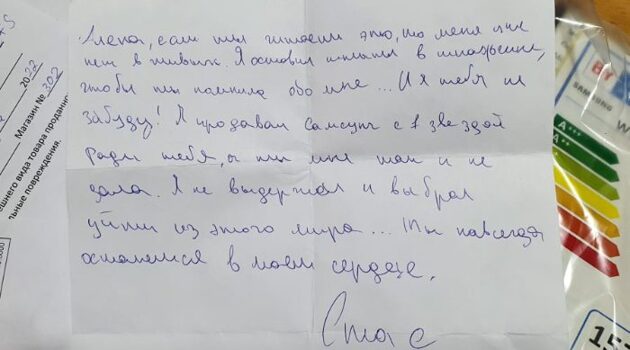 Алена, если ты читаешь это, то меня уже
нет в живых. Я оставил в
чтобы ты помнила обо мне... И я тебя не
забуду! Я продавал Самсунг с 1 звездой
ради тебя, а ты мне так и не
дала. Я не выдержал и выбрал
уйти из этого мира... Ты навсегда
останешься в моем сердце.
Стас
2022
Магазин № 302
ешнего вида товара продавц
льные повреждения.
SAMSUNG
BY
A+++
A++